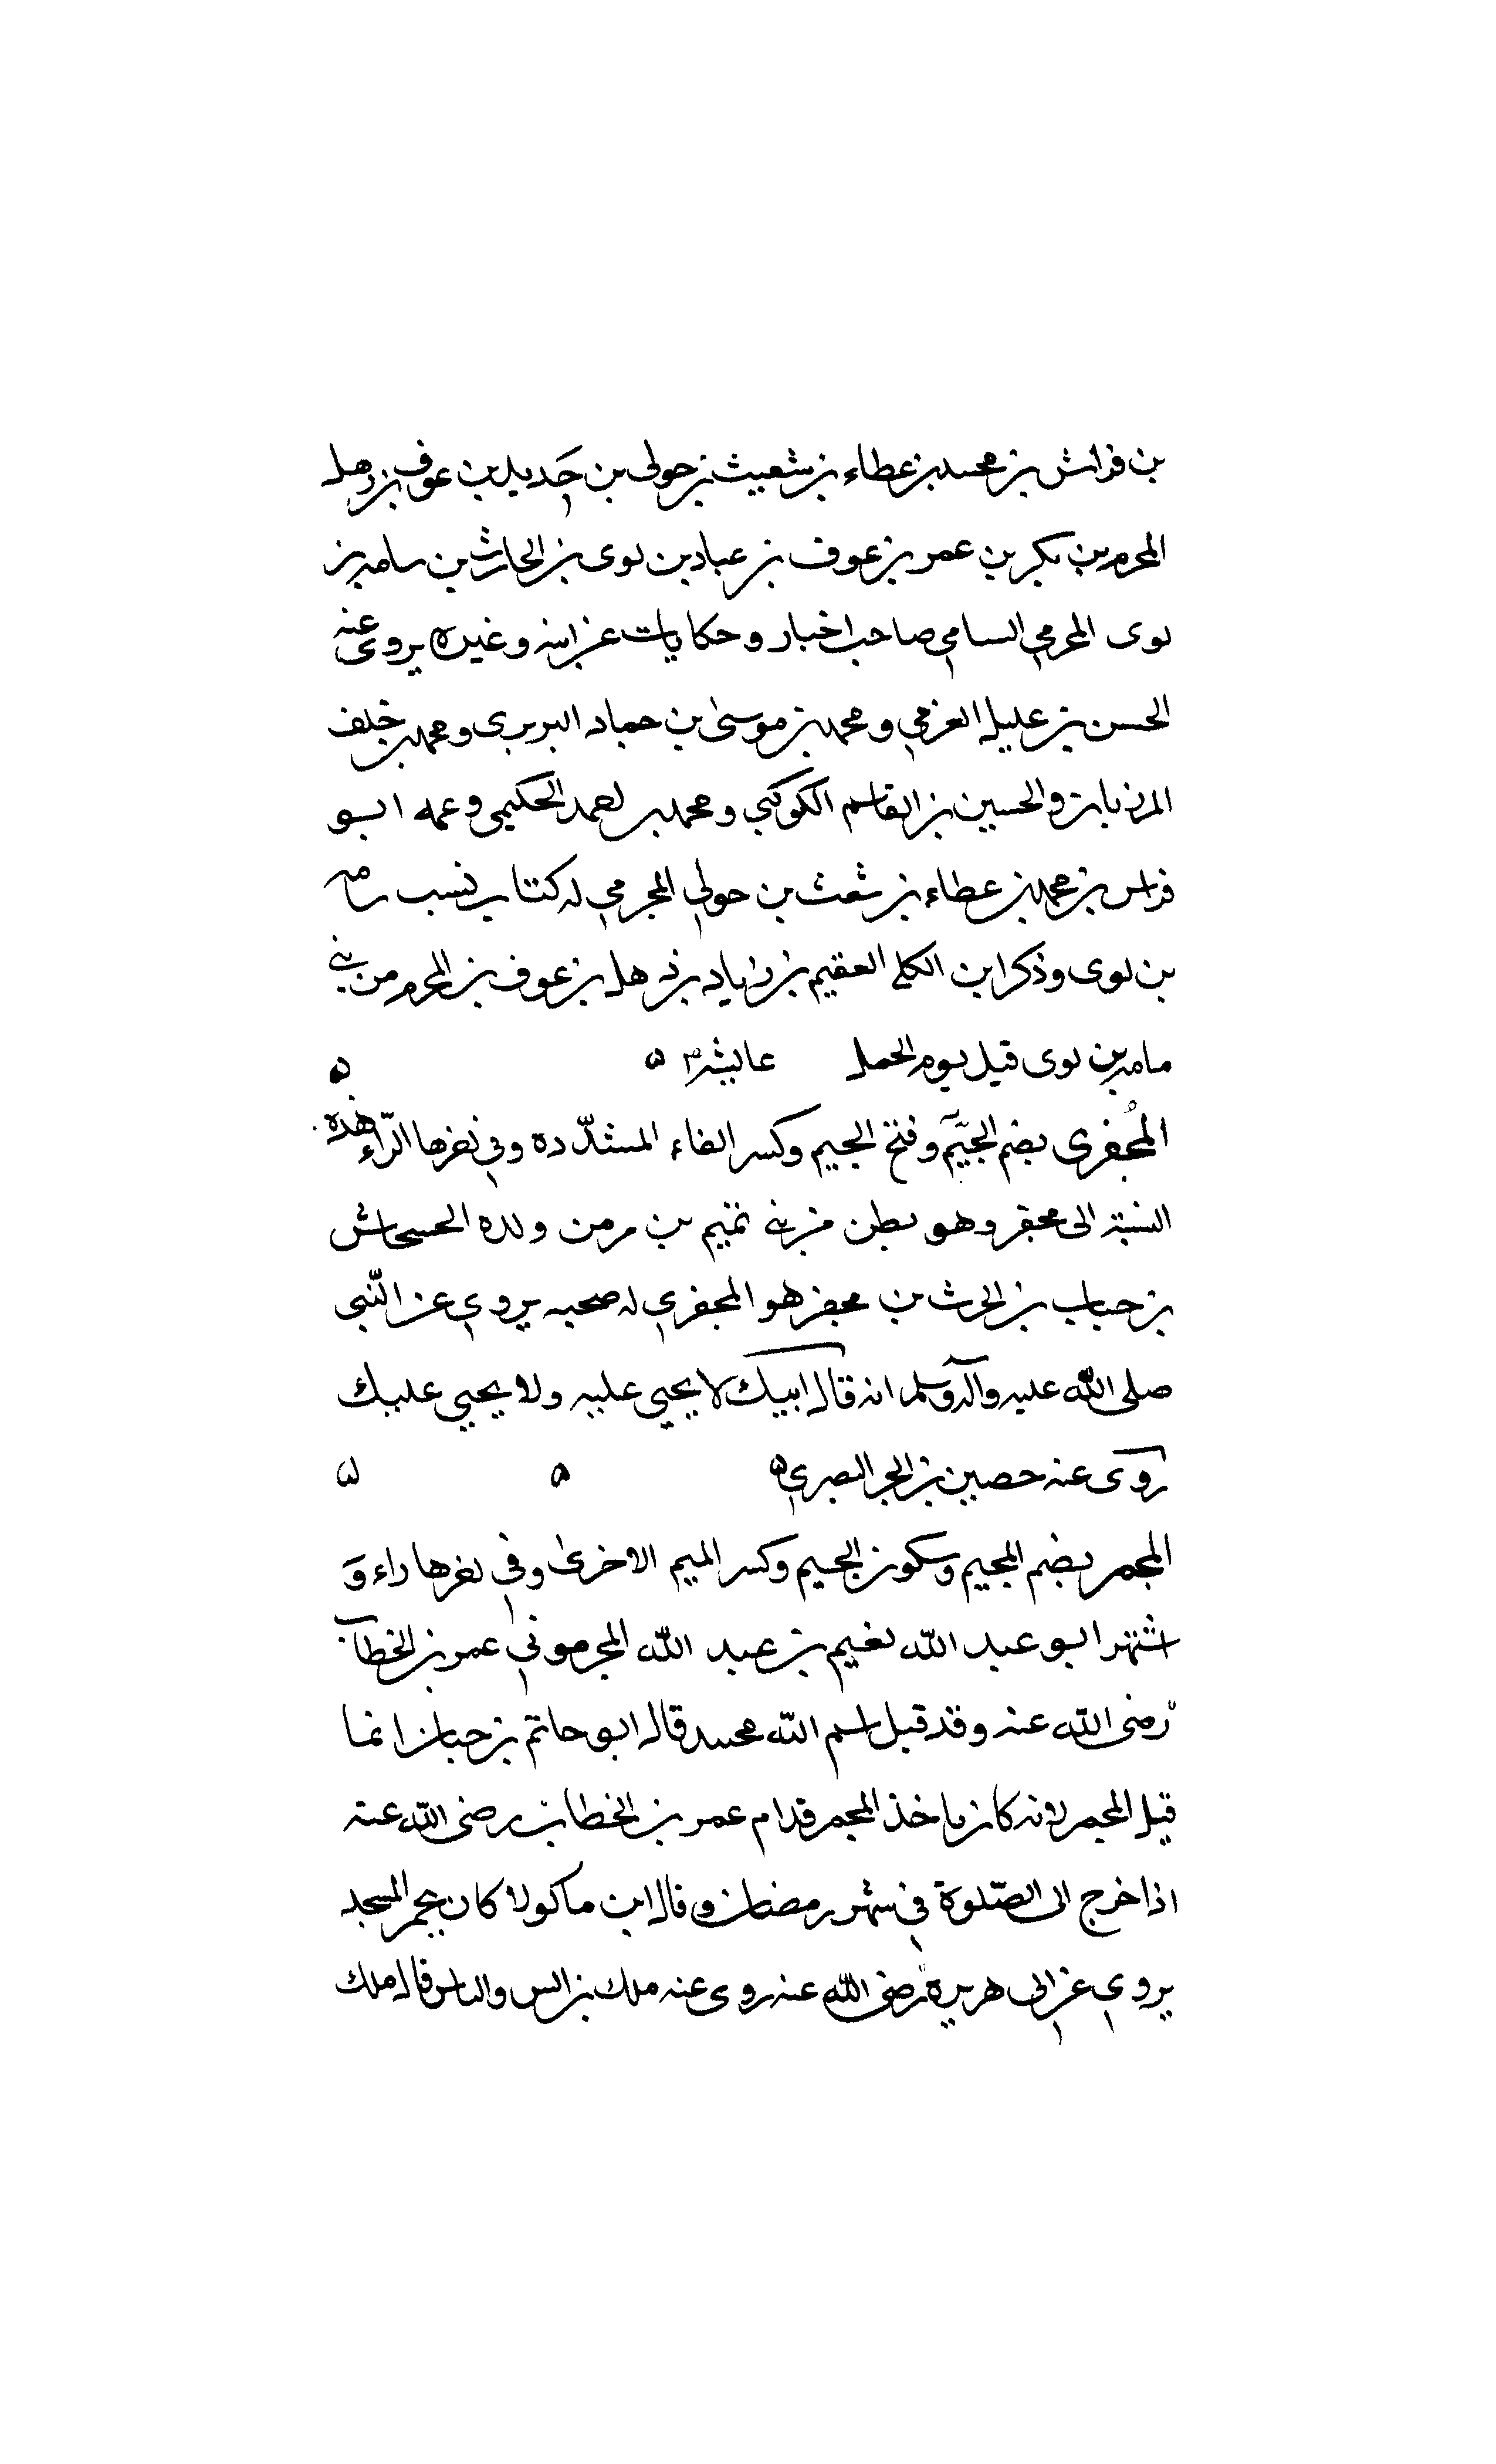 بن فراش بن محمد بن عطاء بن شعيث بن حولى بن حَديد بن عوف بن ذهل
المجرم بن بكر بن عمر بن عوف بن عباد بن لوى بن الحارث بن سامه بن
لوى المجرمي السامي صاحب اخبار وحكايات عن ابيه وغيره يروى عنه
الحسن بن عليل العنزمي ومحمد بن موسى بن حماد البربرى ومحمد بن خلف
المرزبان والحسين بن القاسم الكوكبي ومحمد بن احمد الحكيمى وعمه ابو
فراس بن محمد بن عطاء بن شعث بن حولي المجرمي له كتاب نسب سامه
بن لوى وذكر ابن الكلبي العقيم بن زياد بن ذهل بن عوف بن المجرم من بني
سامه بن لوى قتل يوم الجمل عايشه
المُجفرى بضم الميم وفتح الجيم وكسر الفاء المشدّده وفي اخرها الرّاء هذه
النسبة الى مجفر وهو بطن من بني تميم بن مر من ولده الحسحاش
بن حباب بن الحرث بن مجفر هو المجفري له صحبه يروي عن النّبي
صلى الله عليه وآله وسلم انه قال ابنك لا يجني عليه ولا يجني عليك
روى عنه حصين بن الحر البصري
المجمر بضم الميم وسكون الجيم وكسر الميم الاخرى وفي اخرها راء وَ
اشتهر ابو عبد الله نعيم بن عبد الله المجمر مولى عمر بن الخطاب
رضى الله عنه وقد قيل اسم الله محمد قال ابو حاتم بن حبان انما
قيل المجمر لانه كان ياخذ المجمر قدام عمر بن الخطاب رضى الله عنه
اذا خرج الى الصّلوة في شهر رمضان وقال ابن ماكولا كان يجمر المسجد
يروي عن ابى هريرة رضى الله عنه روى عنه ملك بن انس والناس قال ملك